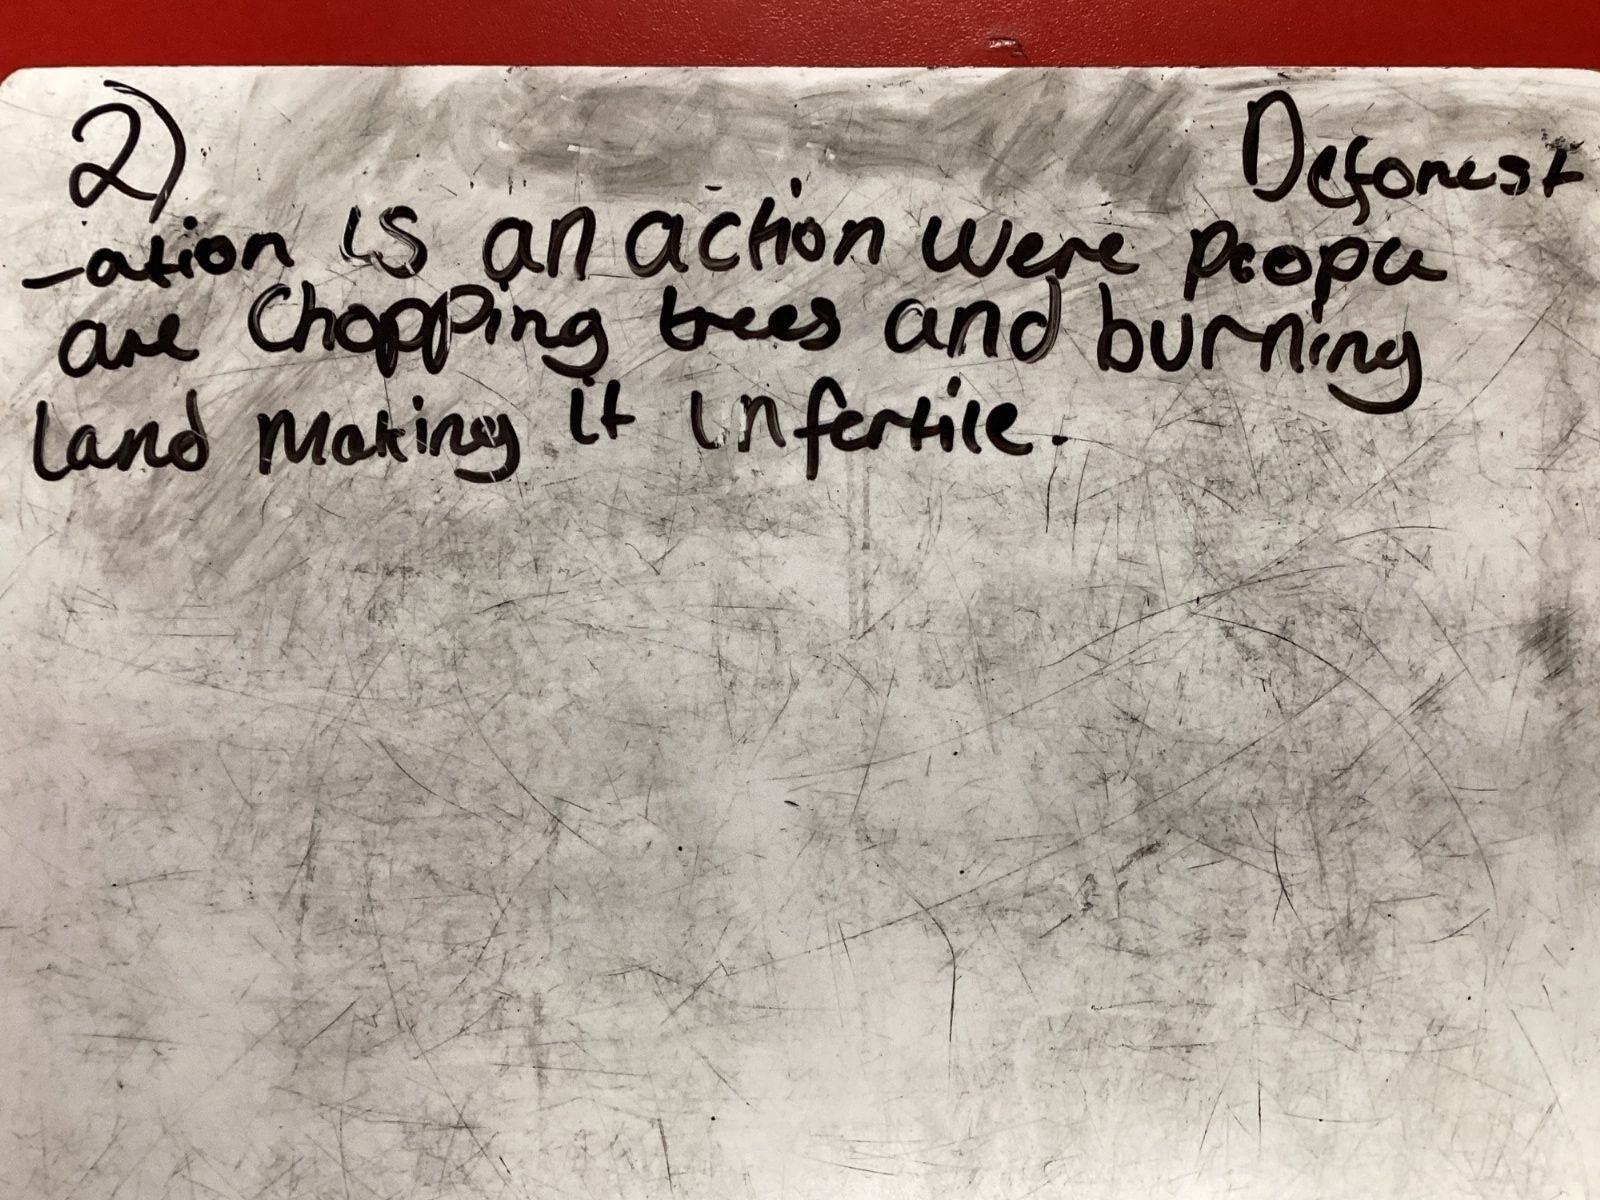 2) Deforest
-ation is an action were people
are Chopping trees and burning
land making it infertile.